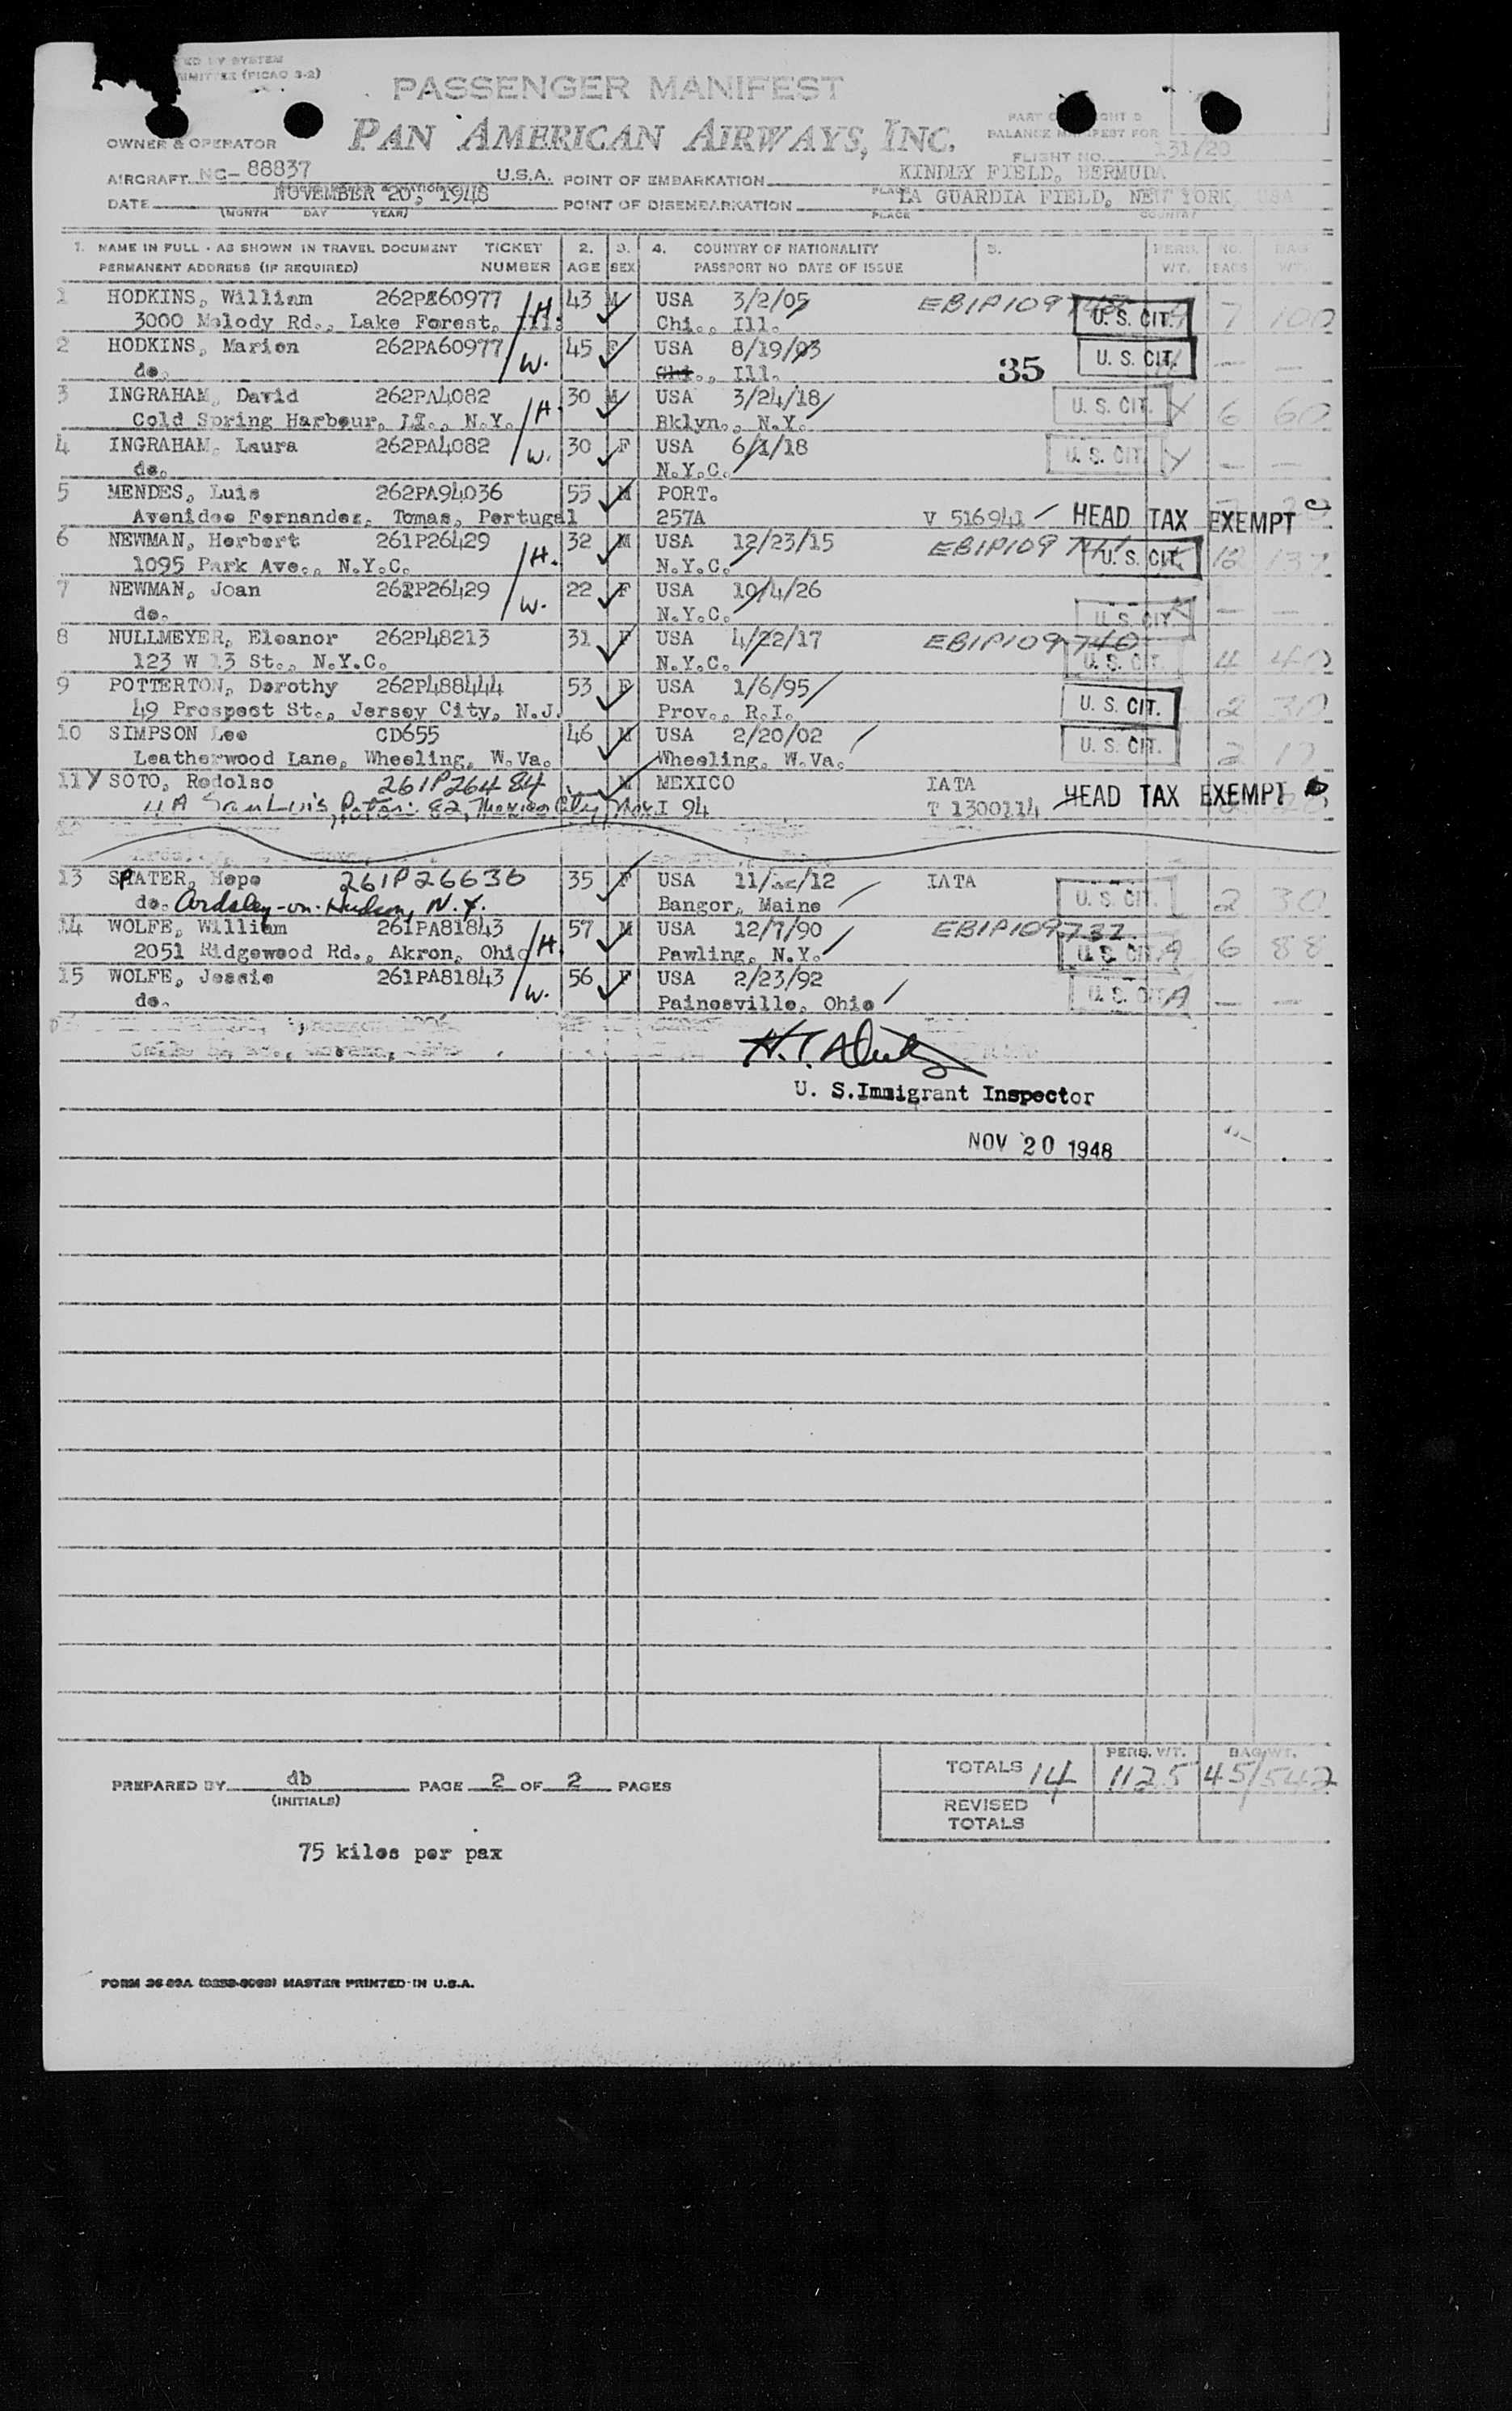 ED BY SYSTEM
(PICAO 3-2)
PASSENGER MANIFEST
PAN AMERICAN AIRWAYS, INC.
OWNER & OPERATOR
BALANCE MANIFEST FOR
FLIGHT NO. 131/20
AIRCRAFT NC-88837 U.S.A. POINT OF EMBARKATION KINDLEY FIELD, BERMUDA
DATE NOVEMBER 20, 1948 POINT OF DISEMBARKATION LA GUARDIA FIELD, NEW YORK, USA
(MONTH DAY YEAR) PLACE COUNTRY
1. NAME IN FULL - AS SHOWN IN TRAVEL DOCUMENT TICKET 2. 3. 4. COUNTRY OF NATIONALITY 5. PERS. NO. BAG
PERMANENT ADDRESS (IF REQUIRED) NUMBER AGE SEX PASSPORT NO DATE OF ISSUE WT. BAGS WT.
1 HODKINS, William 262PA60977 /H. 43 M USA 3/2/05 U. S. CIT. 7 100
3000 Melody Rd., Lake Forest, Ill. Chi., Ill.
2 HODKINS, Marion 262PA60977 /W. 45 F USA 8/19/03 35 U. S. CIT. — —
do. Chi., Ill.
3 INGRAHAM, David 262PA4082 /H. 30 M USA 3/24/18 U. S. CIT. 6 60
Cold Spring Harbour, LI., N.Y. Bklyn., N.Y.
4 INGRAHAM, Laura 262PA4082 /W. 30 F USA 6/1/18 U. S. CIT. — —
do. N.Y.C.
5 MENDES, Luis 262PA94036 55 M PORT.
Avenidoe Fernandez, Tomas, Portugal 257A V 516941 HEAD TAX EXEMPT
6 NEWMAN, Herbert 261P26429 /H. 32 M USA 12/23/15 U. S. CIT. 137
1095 Park Ave., N.Y.C. N.Y.C.
7 NEWMAN, Joan 261P26429 /W. 22 F USA 10/4/26 U. S. CIT. — —
do. N.Y.C.
8 NULLMEYER, Eleanor 262P48213 31 F USA 4/22/17 EBIP109740 U. S. CIT. 4 40
123 W 13 St., N.Y.C. N.Y.C.
9 POTTERTON, Dorothy 262P488444 53 F USA 1/6/95 U. S. CIT. 2 30
49 Prospect St., Jersey City, N.J. Prov., R.I.
10 SIMPSON Lee CD655 46 M USA 2/20/02 U. S. CIT. 2 17
Leatherwood Lane, Wheeling, W.Va. Wheeling, W.Va.
11 SOTO, Rodolso 261P26484 M MEXICO IATA
11A San Luis Potosi 82, Mexico City, Mex. I 94 T 1300114 HEAD TAX EXEMPT
13 SPATER, Hope 261P26636 35 F USA 11/ /12 IATA U. S. CIT. 2 30
do. Ardsley-on-Hudson, N.Y. Bangor, Maine
14 WOLFE, William 261PA81843 /H. 57 M USA 12/7/90 EBIP109732 U. S. CIT. 6 88
2051 Ridgewood Rd., Akron, Ohio Pawling, N.Y.
15 WOLFE, Jessie 261PA81843 /W. 56 F USA 2/23/92 U. S. CIT. — —
do. Painesville, Ohio
U. S. Immigrant Inspector
NOV 20 1948
PERS. WT. BAG WT.
TOTALS 14 1125 45/542
PREPARED BY db PAGE 2 OF 2 PAGES
(INITIALS)
REVISED
TOTALS
75 kilos per pax
MASTER PRINTED IN U.S.A.